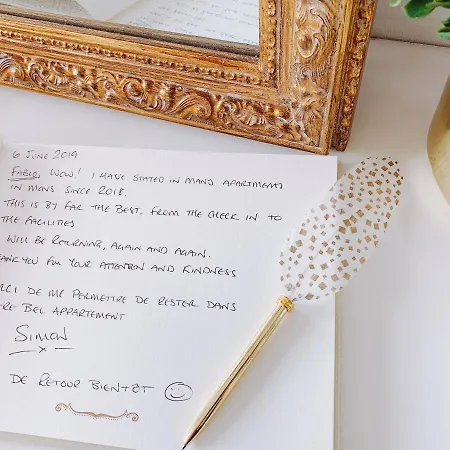 6 JUNE 2019
FABIO, WOW! I HAVE STATED IN MANY APARTMENTS
IN MONS SINCE 2018.
THIS IS BY FAR THE BEST. FROM THE CHECK IN TO
THE FACILITIES
WILL BE RETURNING, AGAIN AND AGAIN.
THANK YOU FOR YOUR ATTENTION AND KINDNESS
RCI DE ME PERMETTRE DE RESTER DANS
RE BEL APPARTEMENT
SIMON
x
DE RETOUR BIENTÔT